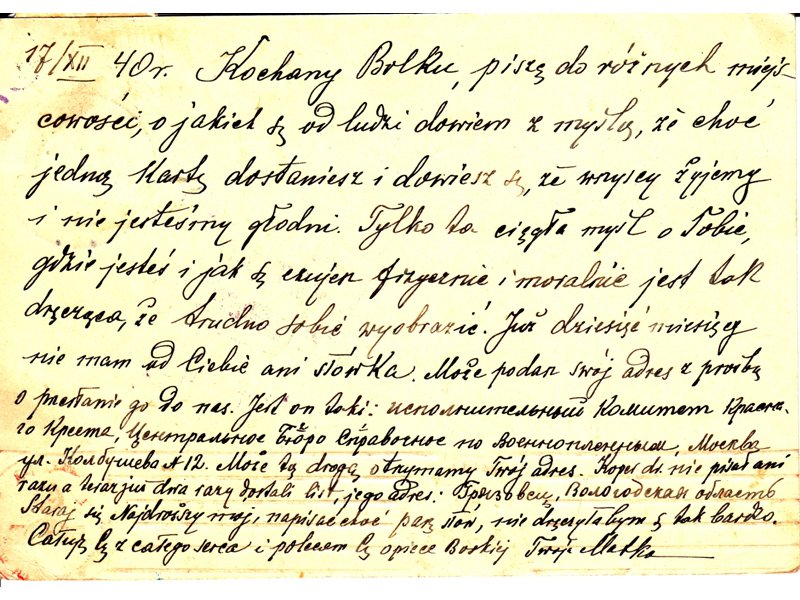 17/XII 40r. Kochany Bolku, piszę do różnych miejs-
cowości, o jakich się od ludzi dowiem z myślą, że choć
jedną kartę dostaniesz i dowiesz się, że wszyscy żyjemy
i nie jesteśmy głodni. Tylko ta ciągła myśl o Tobie,
gdzie jesteś i jak się czujesz fizycznie i moralnie jest tak
dręcząca, że trudno sobie wyobrazić. Już dziesięć miesięcy
nie mam od Ciebie ani słówka. Może podasz swój adres z prośbą
o przesłanie go do nas. Jest on taki: исполнительный Комитет Красно-
го Креста, Центральное Бюро Справочное по Военнопленным, Москва
ул.Колбушева N 12. Może tą drogą otrzymamy Twój adres. nie pisał ani
razu a teraz już dwa razy dostali list, jego adres: Грязовец, Вологодская область
Staraj się Najdroższy mój, napisać choć parę słów, nie dręczyłabym się tak bardzo.
Całuję Cię z całego serca i polecam Cię opiece Boskiej Twoja Matka